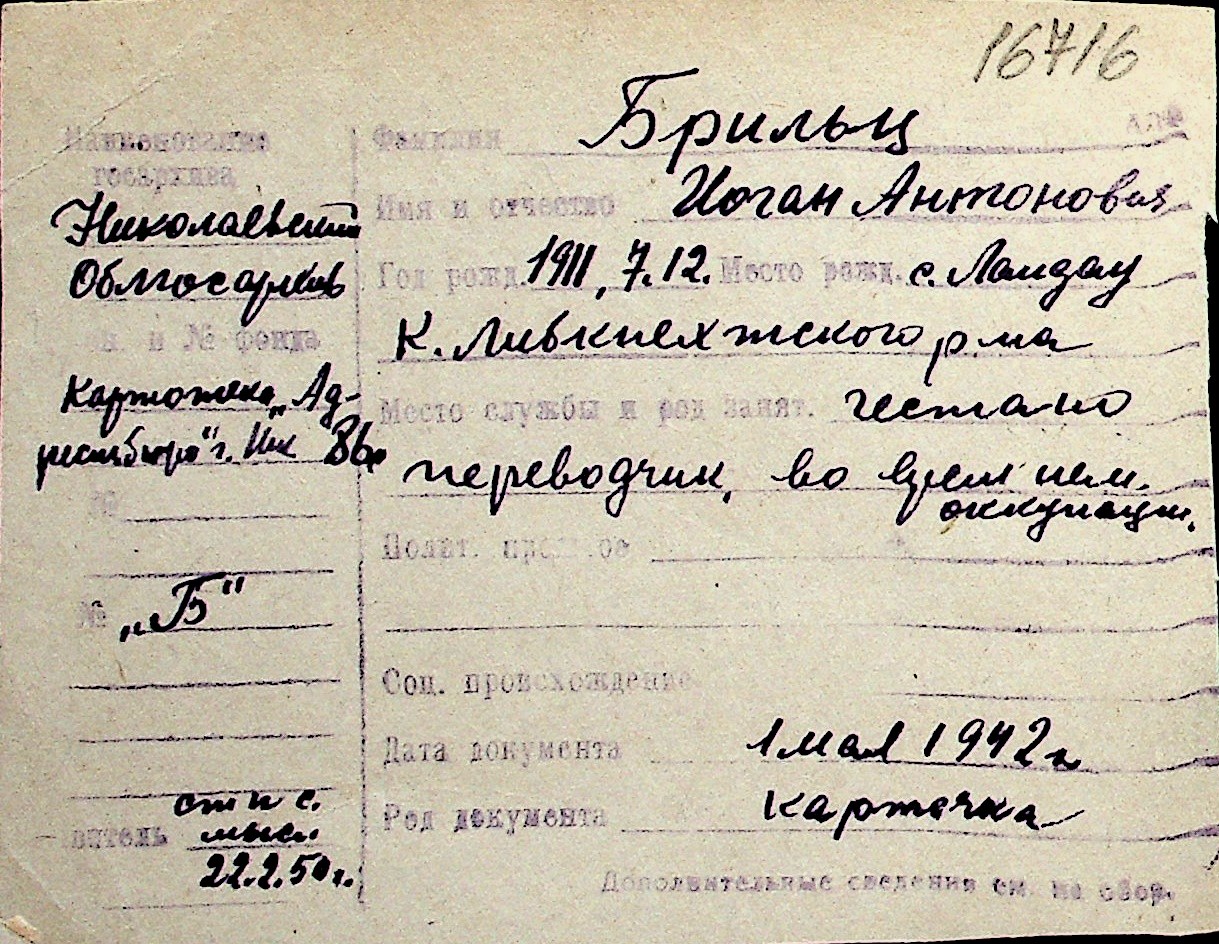 16716
Наименование
госархива
Николаевский
Облгосархив
и № фонда
Картотека „Ад-
ресн. бюро" г. Ник
№
№ „Б"
ст н с.
витель
22.2.50 г.
Фамилия Брильц
Имя и отчество Иоган Антонович
Год рожд. 1911, 7.12. Место рожд. с. Ландау
К. Либкнехтского р-на
Место службы и род занят. гестапо
переводчик, во время нем.
оккупации.
Полит. прошлое
Соц. происхождение
Дата документа 1 мая 1942 г.
Род документа карточка
Дополнительные сведения см. на обор.